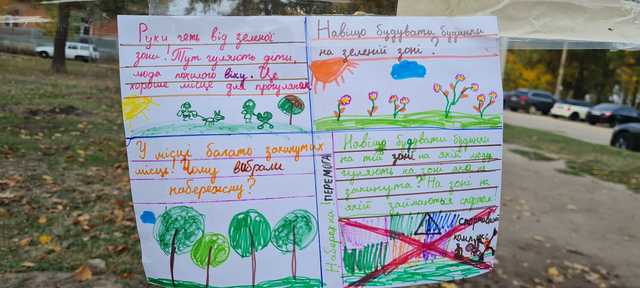 Руки геть від зеленої
зони! Тут гуляють діти,
люда похилого віку. Це
хороше місце для прогулянок
Навіщо будувати будинки
на зеленій зоні?
У місці багато закинутих
місць! Чому вибрали
набережну?
Навіщо будувати будинки
на тій зоні на якій люди
гуляють на зоні яка не
закинута? На зоні на
якій займаються спортом
Набережна! ПЕРЕМОГА
Спортивний
комплекс